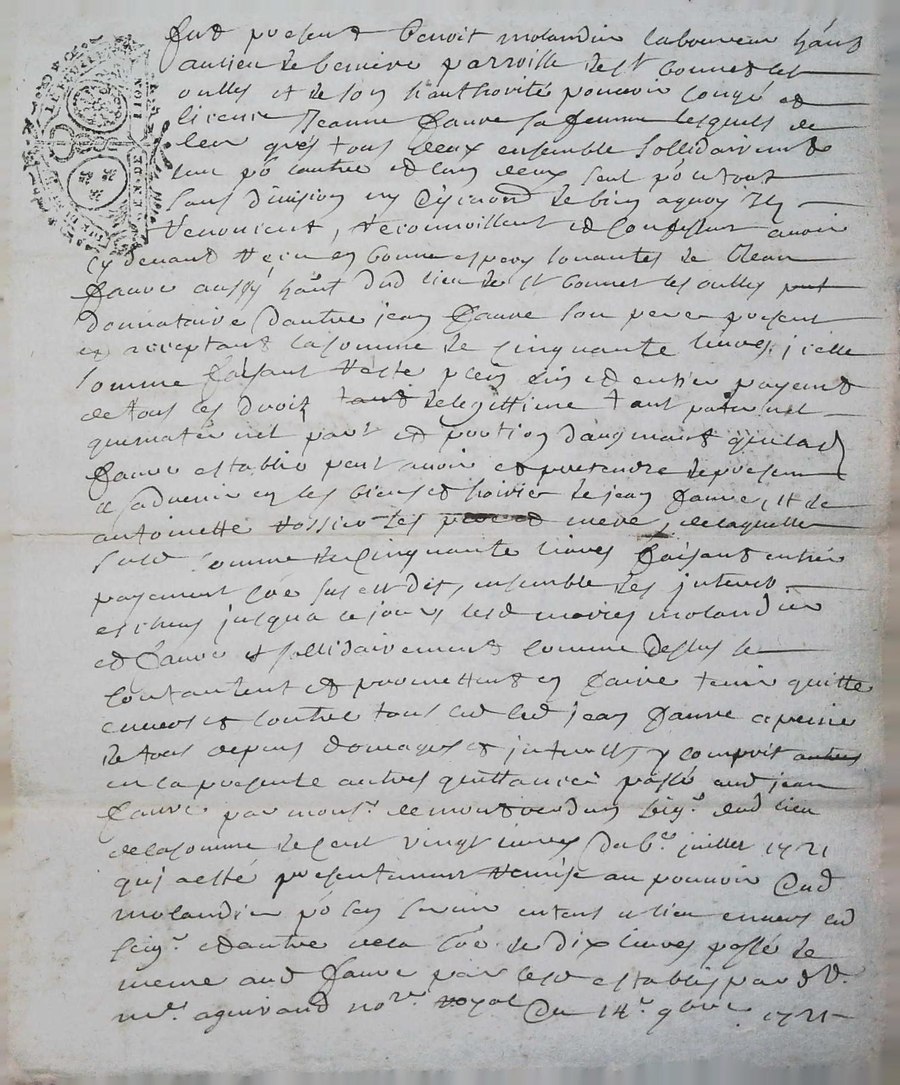 fut present benoit molandin laboureur hânt
au lieu de beniere parroisse de st bonnet les
oulles et de son h authorité pouvoir congé et
licence Jeanne faure sa femme lesquels de
leur grés tous deux ensemble sollidairement
lun po lautre et lun deux seul po le tout
sans division ny discution de bien a quoy ils
renoncent, reconnoissent et confessent avoir
cy devant receu en bonne espesse sonantes de Jean
faure aussy hânt dud lieu de st bonnet les oulles
donnataire dautre jean faure son pere present
et acceptant la somme de cinquante livres, icelle
somme faisant reste plein fin et entier payement
de tous les droit de legittime tant paternel
que maternel part et portion daugment que lad
faure establie peut avoir et pretendre de present
et advenir en les biens et hoirie de jean faure, et de
antoinette tissier les mere, de laquelle
susd somme de cinquante livres faisant entier
payement côe sus est dit, ensemble des interest
escheus jusqua ce jours lesd mariés molandin
et faure et sollidairement comme dessus se
contantent et promettent en faire tenir quitte
envers et contre tous led jean faure a peine
de tous depens domages et interests y comprit
en la presente autres quittance passé aud jean
faure par monsr. de montverdun seigr. dud lieu
de la somme de cent vingt livres du 6e. juillet 1721
qui a esté presentement remise au pouvoir dud
molandin po sen servir en tems et lieu envers led
seigr. et autre de la sôe de dix livres passé de
meme aud faure par lesd establis pard.t
me. aguiraud nore. royal du 14e. 9bre. 1721